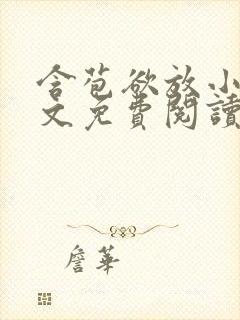 含苞欲放小
文免費閱讀
詹華